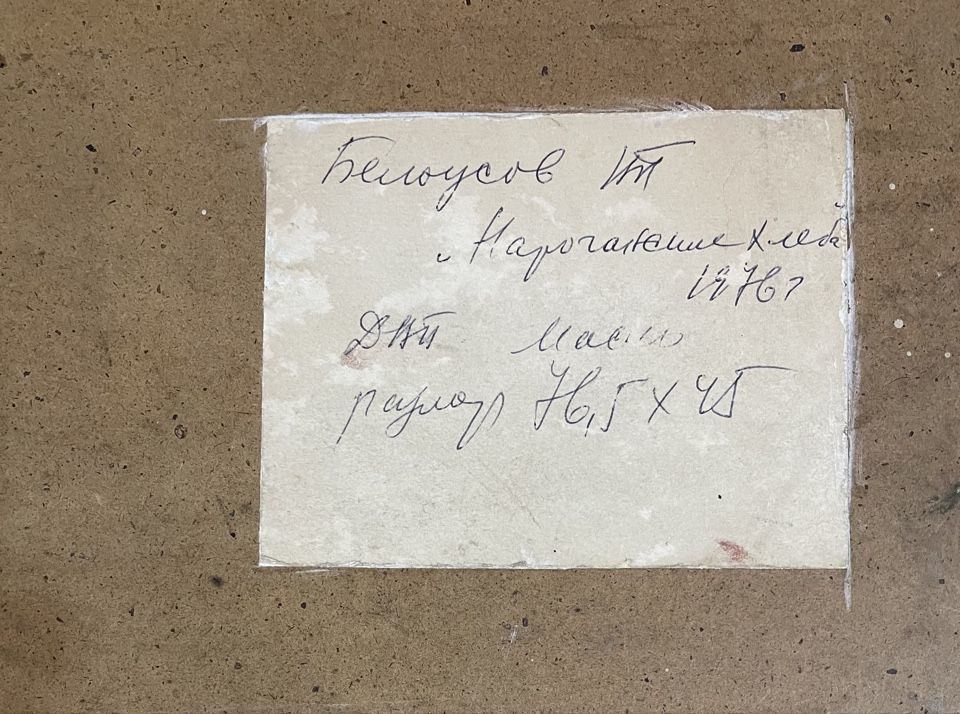 Белоусов
хлеба
1976 г
ДВП масло
размер 76,5 х 45